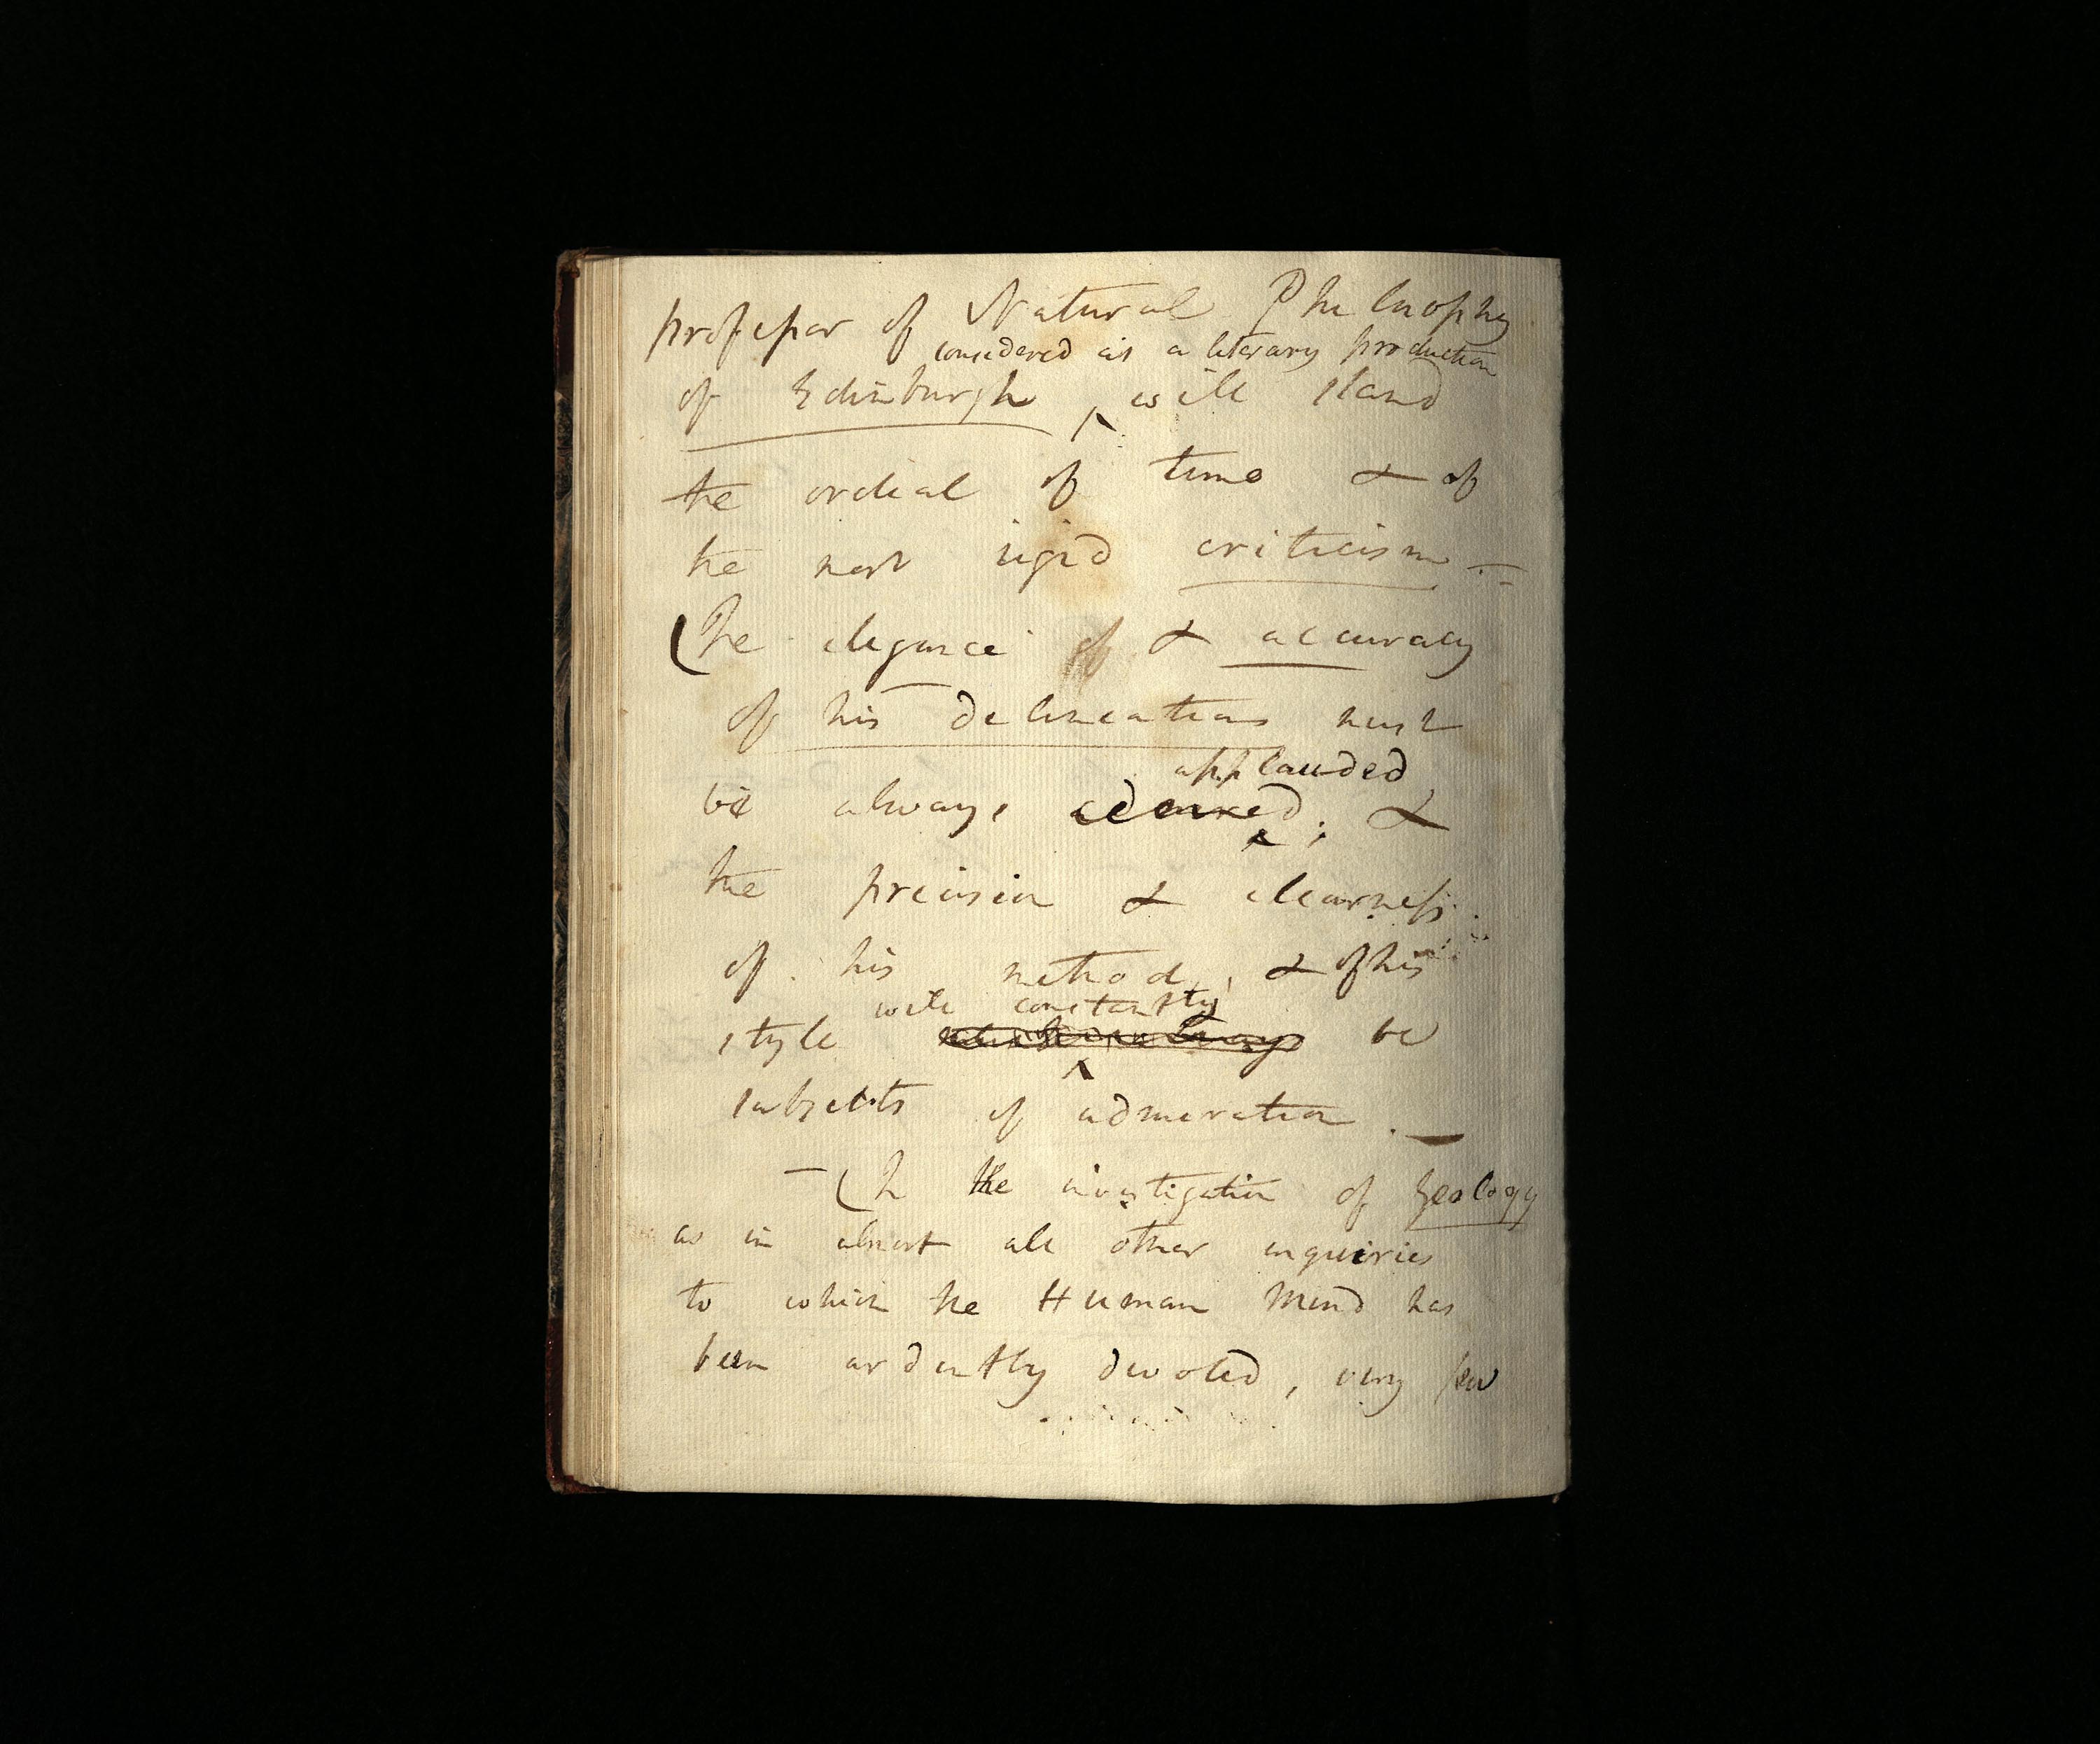 professor of Natural Philosophy
considered as a literary production
of Edinburgh, will stand
the ordeal of time & of
the most rigid criticism. =
The elegance of & accuracy
of his delineations must
applauded
be always admired; &
the precision & clearness
of his method, & of his
will constantly
style be
subjects of admiration. —
— In the investigation of Geology
as in almost all other enquiries
to which the Human Mind has
been ardently devoted, very few